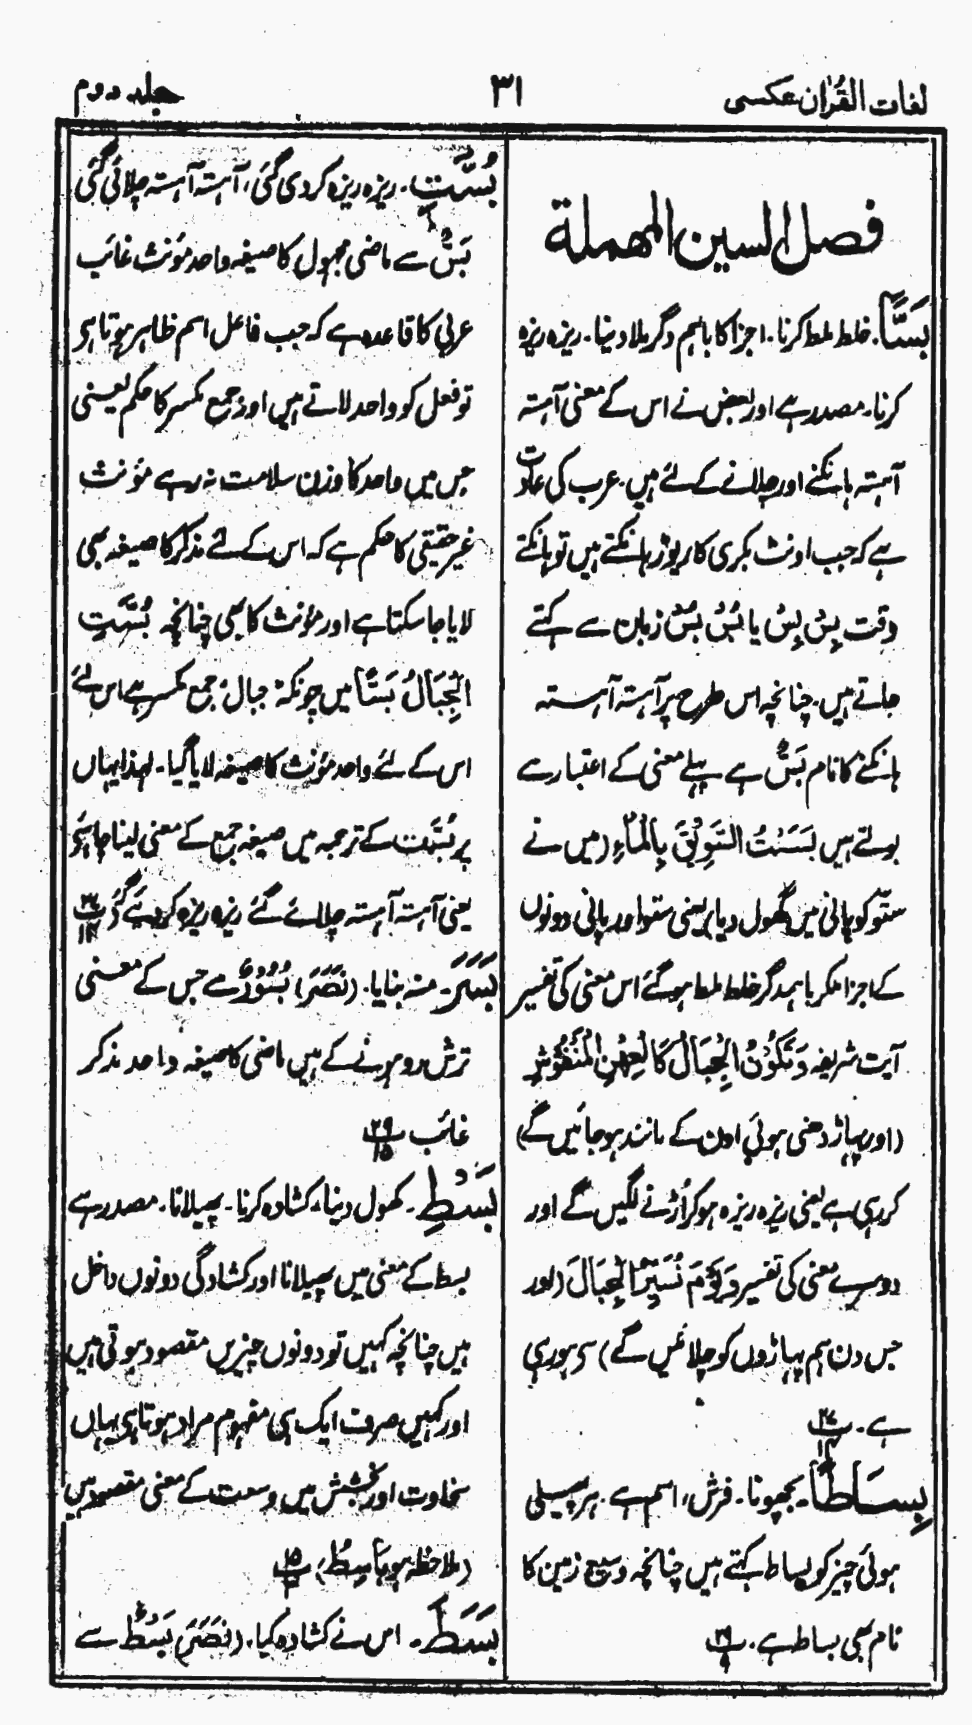 لغات القرآن عکسی
۳۱
جلد دوم
فصل السین المهملة
بَسًّا۔ خلط ملط کرنا۔ اجزا کا باہم دگر ملا دینا۔ ریزہ ریزہ
کرنا۔ مصدر ہے اور بعض نے اس کے معنی آہستہ
آہستہ ہانکنے اور چلانے کے لئے ہیں۔ عرب کی عادت
ہے کہ جب اونٹ بکری کا ریوڑ ہانکتے ہیں تو ہانکتے
وقت بِسْ بِسْ یا بُسْ بُسْ زبان سے کہتے
جاتے ہیں۔ چنانچہ اس طرح پر آہستہ آہستہ
ہانکنے کا نام بَسٌّ ہے پہلے معنی کے اعتبار سے
بولتے ہیں بَسَسْتُ السَّوِیْقَ بِالْمَاءِ (میں نے
ستّو کو پانی میں گھول دیا) یعنی ستو اور پانی دونوں
کے اجزا ملکر باہمدگر خلط ملط ہو گئے اس معنی کی تفسیر
آیت شریفہ وَتَكُوْنُ الْجِبَالُ كَالْعِهْنِ الْمَنْفُوْشِ
(اور پہاڑ دھنی ہوئی اون کے مانند ہو جائیں گے)
کر رہی ہے یعنی ریزہ ریزہ ہو کر اُڑنے لگیں گے اور
دوسرے معنی کی تفسیر وَیَوْمَ نُسَیِّرُ الْجِبَالَ (اور
جس دن ہم پہاڑوں کو چلائیں گے) سے ہو رہی
ہے۔ پ۲۷ ۱۴
بِسَاطًا۔ بچھونا۔ فرش، اسم ہے۔ ہر پھیلی
ہوئی چیز کو بساط کہتے ہیں چنانچہ وسیع زمین کا
نام بھی بساط ہے۔ پ۲۹ ۹
بُسَّتِ۔ ریزہ ریزہ کر دی گئی، آہستہ آہستہ چلائی گئی
بَسٌّ سے ماضی مجہول کا صیغہ واحد مؤنث غائب
عربی کا قاعدہ ہے کہ جب فاعل اسم ظاہر ہوتا ہے
تو فعل کو واحد لاتے ہیں اور جمع مکسر کا حکم یعنی
جس میں واحد کا وزن سلامت نہ رہے مؤنث
غیر حقیقی کا حکم ہے کہ اس کے لئے مذکر کا صیغہ بھی
لایا جا سکتا ہے اور مؤنث کا بھی چنانچہ بُسَّتِ
الْجِبَالُ بَسًّا میں چونکہ جبالٌ جمع مکسر ہے اس لئے
اس کے لئے واحد مؤنث کا صیغہ لایا گیا۔ لہذا یہاں
پر بُسَّت کے ترجمہ میں صیغہ جمع کے معنی لینا چاہئے
یعنی آہستہ آہستہ چلائے گئے ریزہ ریزہ کر دیئے گئے پ۲۷ ۱۴
بَسَرَ۔ منہ بنایا۔ (نَصَرَ) بُسُوْرٌ سے جس کے معنی
ترش رو ہونے کے ہیں ماضی کا صیغہ واحد مذکر
غائب پ۲۹ ۱۵
بَسْطِ۔ کھول دینا، کشادہ کرنا۔ پھیلانا۔ مصدر ہے
بسط کے معنی میں پھیلانا اور کشادگی دونوں داخل
ہیں چنانچہ کہیں تو دونوں چیزیں مقصود ہوتی ہیں
اور کہیں صرف ایک ہی مفہوم مراد ہوتا ہے یہاں
سخاوت اور بخشش میں وسعت کے معنی مقصود ہیں
(ملاحظہ ہو بَاسِطٌ) پ۱۵ ۳
بَسَطَ۔ اس نے کشادہ کیا۔ (نَصَرَ) بَسْطٌ سے